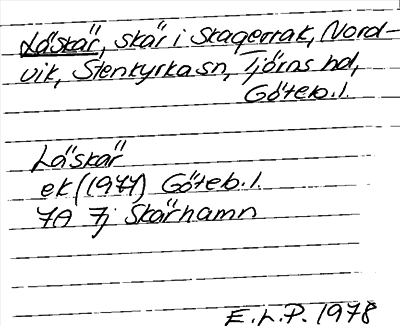 Låskär, skär i Skagerrak, Nord-
vik, Stenkyrka sn, Tjörns hd,
Göteb. l.
Låskär
ek (1977) Göteb. l.
7A 7j Skärhamn
E.L.P. 1978